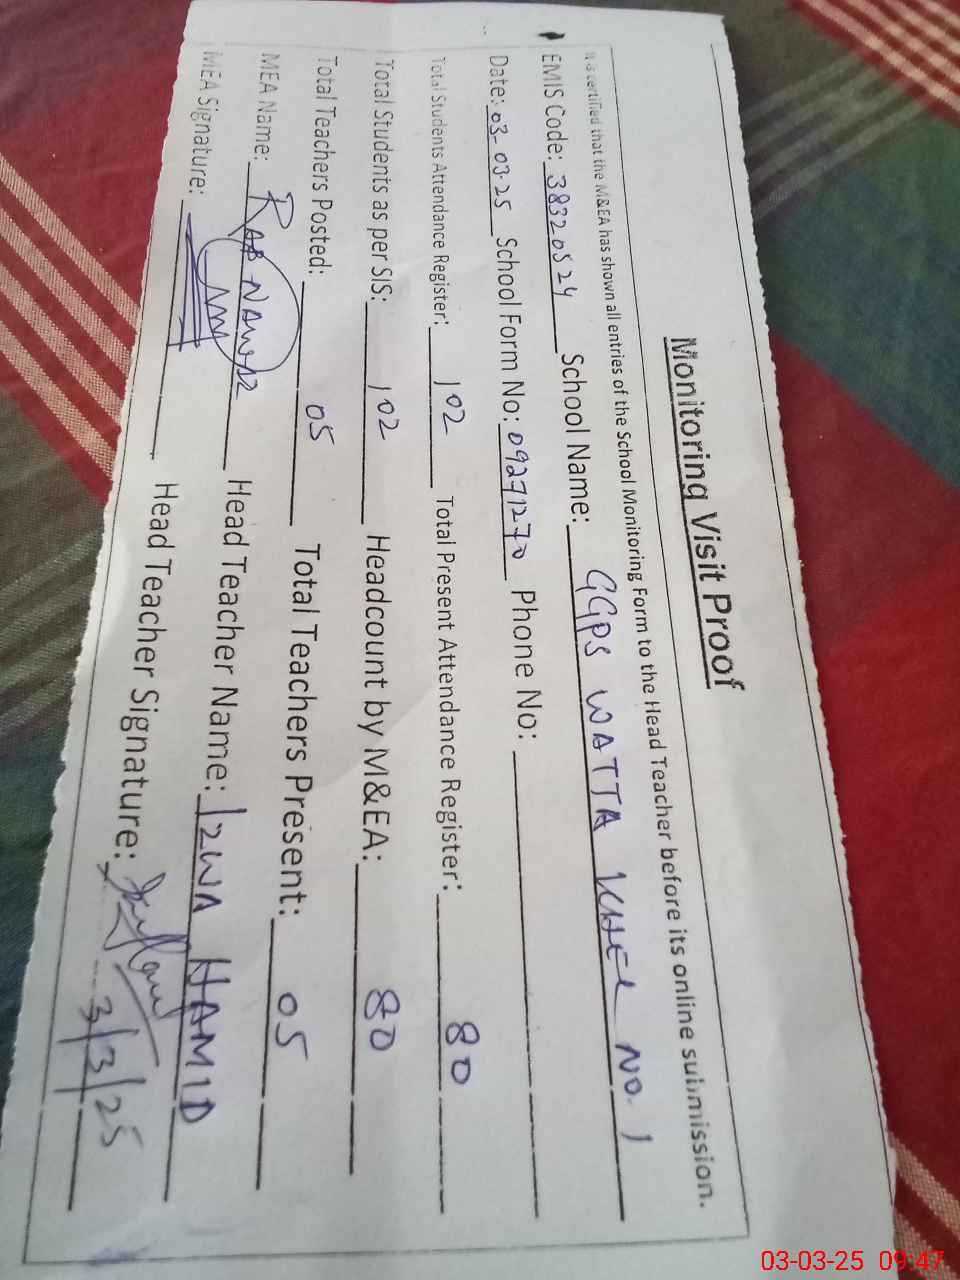 Monitoring Visit Proof
It is certified that the M&EA has shown all entries of the School Monitoring Form to the Head Teacher before its online submission.
EMIS Code: 38320524 School Name: GGPS WATTA KHEL NO. 1
Date: 03-03-25 School Form No: 09271270 Phone No:
Total Students Attendance Register: 102 Total Present Attendance Register: 80
Total Students as per SIS: 102 Headcount by M&EA: 80
Total Teachers Posted: 05 Total Teachers Present: 05
MEA Name: RAB NAWAZ Head Teacher Name: IZWA HAMID
MEA Signature: Head Teacher Signature: 3/3/25
03-03-25 09:47